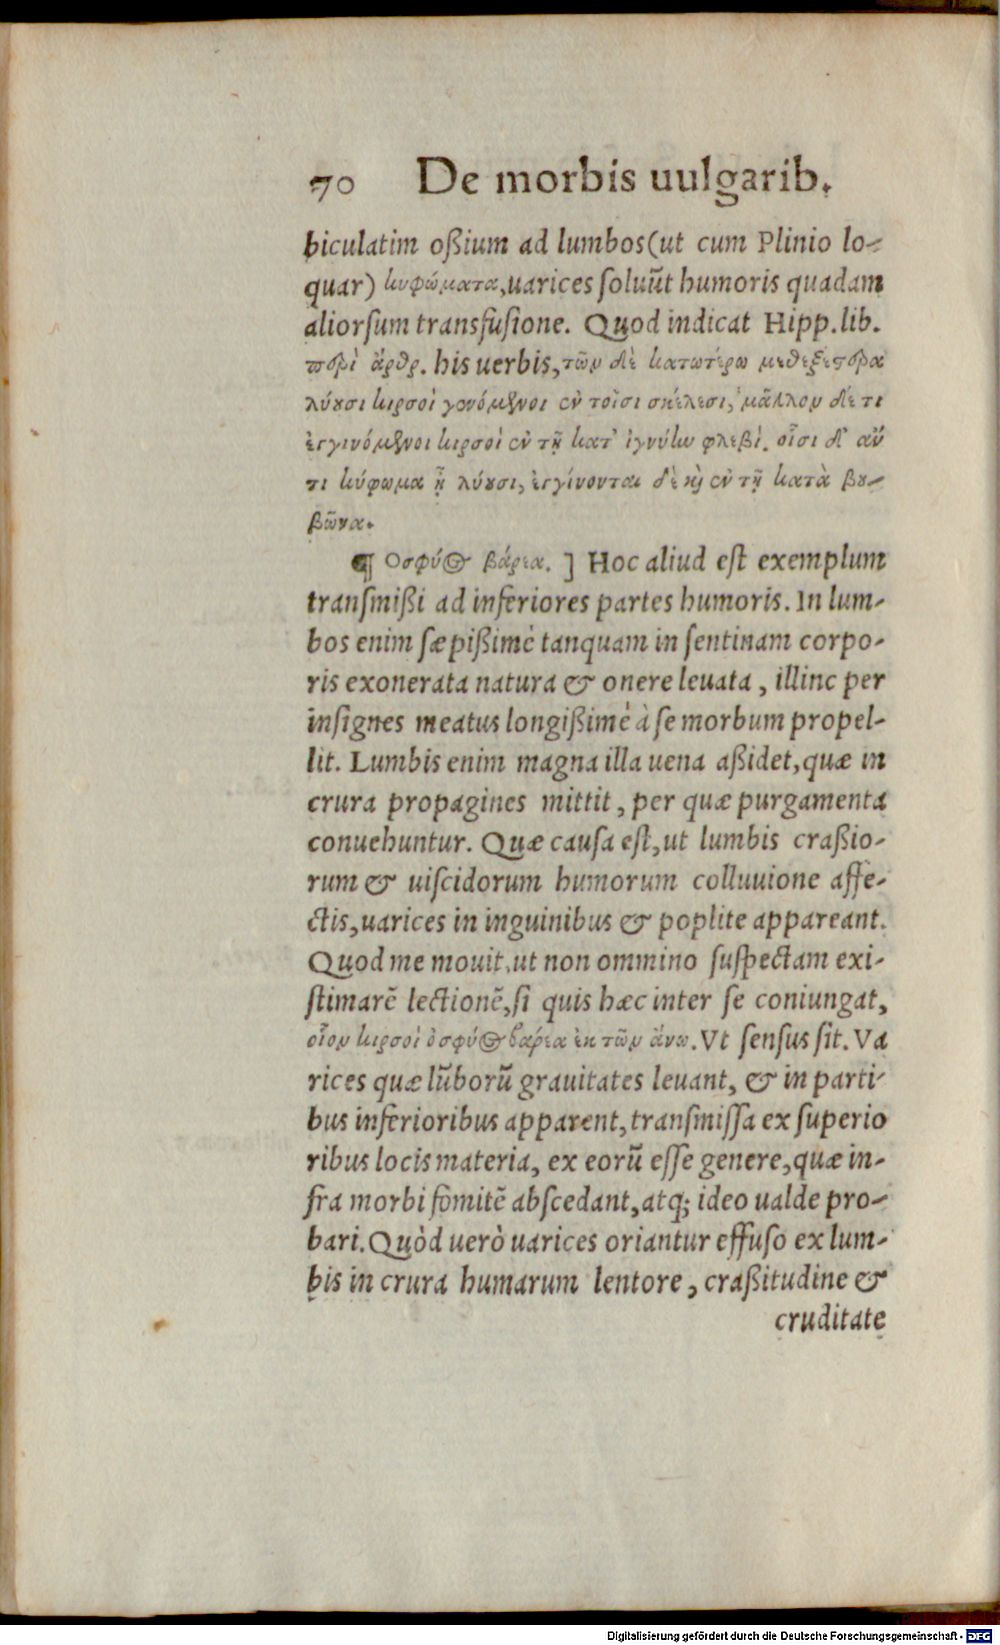 70 De morbis uulgarib.
biculatim oßium ad lumbos (ut cum Plinio lo-
quar) κυφώματα, uarices soluūt humoris quadam
aliorsum transfusione. Quod indicat Hipp. lib.
περὶ ἄρθρ. his uerbis, τῶν δὲ κατωτέρω μεθεξέτερα
λύουσι κιρσοὶ γενόμενοι ἐν τοῖσι σκέλεσι, μᾶλλον δέ τι
ἐγγινόμενοι κιρσοὶ ἐν τῇ κατ' ἰγνύην φλεβί. οἷσι δ' ἄν
τι κύφωμα ᾖ λύουσι, ἐγγίνονται δὲ καὶ ἐν τῇ κατὰ βου-
βῶνα.
¶ Οσφύος βάρεα. ] Hoc aliud est exemplum
transmißi ad inferiores partes humoris. In lum-
bos enim sæpißimè tanquam in sentinam corpo-
ris exonerata natura & onere leuata, illinc per
insignes meatus longißimè à se morbum propel-
lit. Lumbis enim magna illa uena aßidet, quæ in
crura propagines mittit, per quæ purgamenta
conuehuntur. Quæ causa est, ut lumbis craßio-
rum & uiscidorum humorum colluuione affe-
ctis, uarices in inguinibus & poplite appareant.
Quod me mouit, ut non ommino suspectam exi-
stimarē lectionē, si quis hæc inter se coniungat,
οἷον κιρσοὶ ὀσφύος βαρέα ἐκ τῶν ἄνω. Vt sensus sit. Va
rices quæ lūborū grauitates leuant, & in parti-
bus inferioribus apparent, transmissa ex superio
ribus locis materia, ex eorū esse genere, quæ in-
fra morbi fomitē abscedant, atq; ideo ualde pro-
bari. Quòd uerò uarices oriantur effuso ex lum-
bis in crura humarum lentore, craßitudine &
cruditate
Digitalisierung gefördert durch die Deutsche Forschungsgemeinschaft - DFG